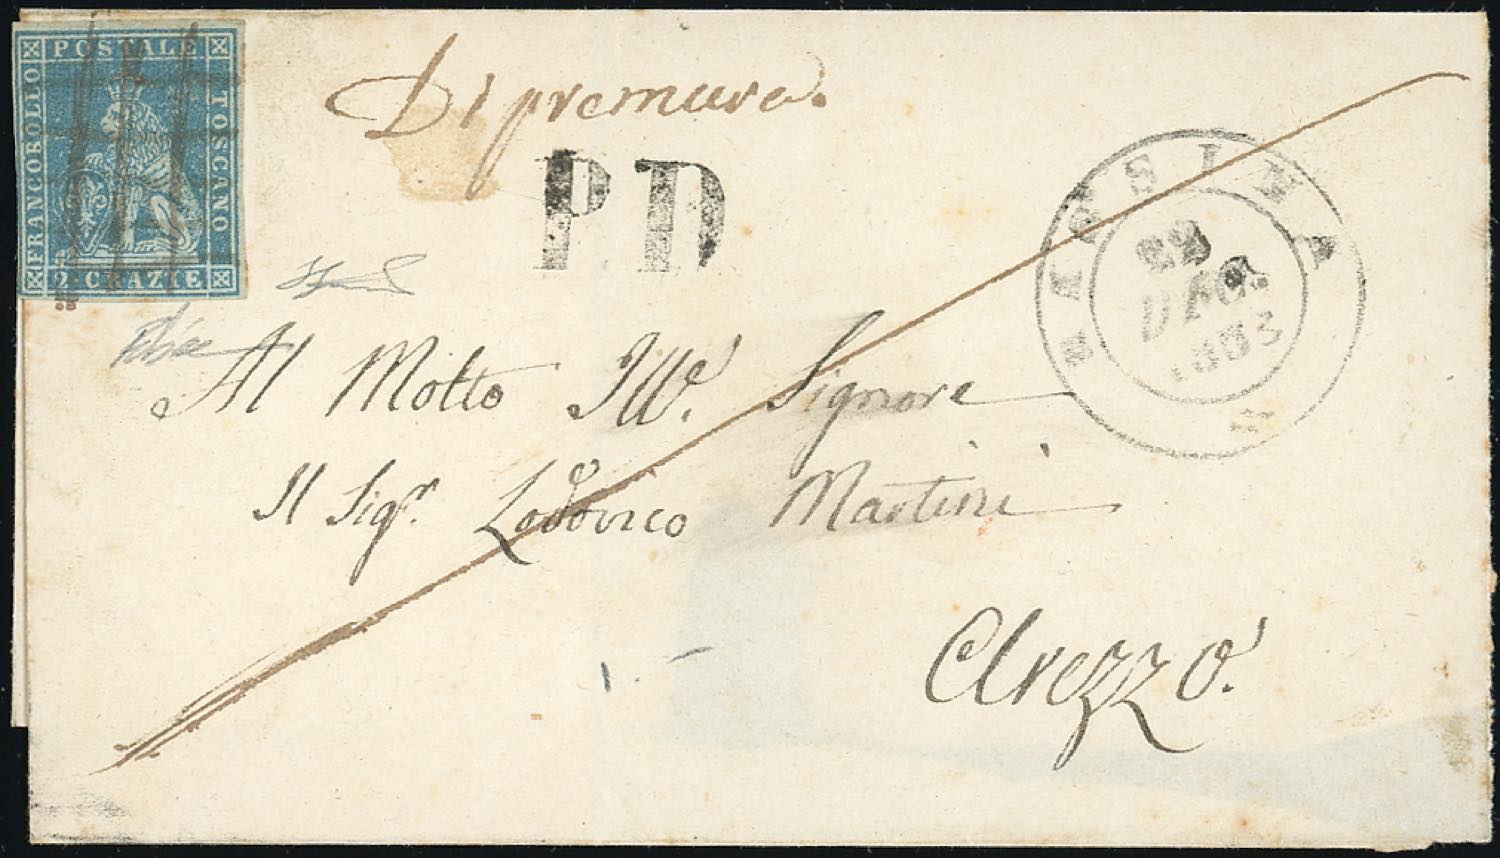 POSTALE
FRANCOBOLLO
TOSCANO
2 CRAZIE
Di premura.
P.D
RASSINA
22
DEC.
1853
Al Molto Ill.e Signore
Il Sigr. Lodovico Martini
Arezzo.